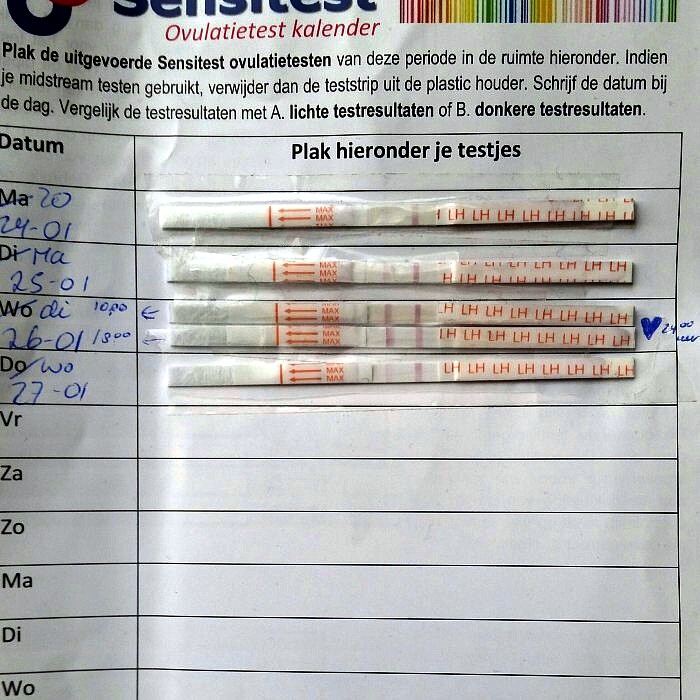 Sensitest
Ovulatietest kalender
Plak de uitgevoerde Sensitest ovulatietesten van deze periode in de ruimte hieronder. Indien
je midstream testen gebruikt, verwijder dan de teststrip uit de plastic houder. Schrijf de datum bij
de dag. Vergelijk de testresultaten met A. lichte testresultaten of B. donkere testresultaten.
Datum Plak hieronder je testjes
Ma zo
24-01
MAX
MAX
MAX
LH LH LH LH LH LH LH
Di Ma
25-01
MAX
MAX
MAX
LH LH LH LH LH LH LH
Wo di 10,00
MAX
MAX
LH LH LH LH LH LH LH
26-01 18,00
MAX
MAX
LH LH LH LH LH LH LH
24,00
uur
Do wo
27-01
MAX
MAX
LH LH LH LH LH LH LH
Vr
Za
Zo
Ma
Di
Wo